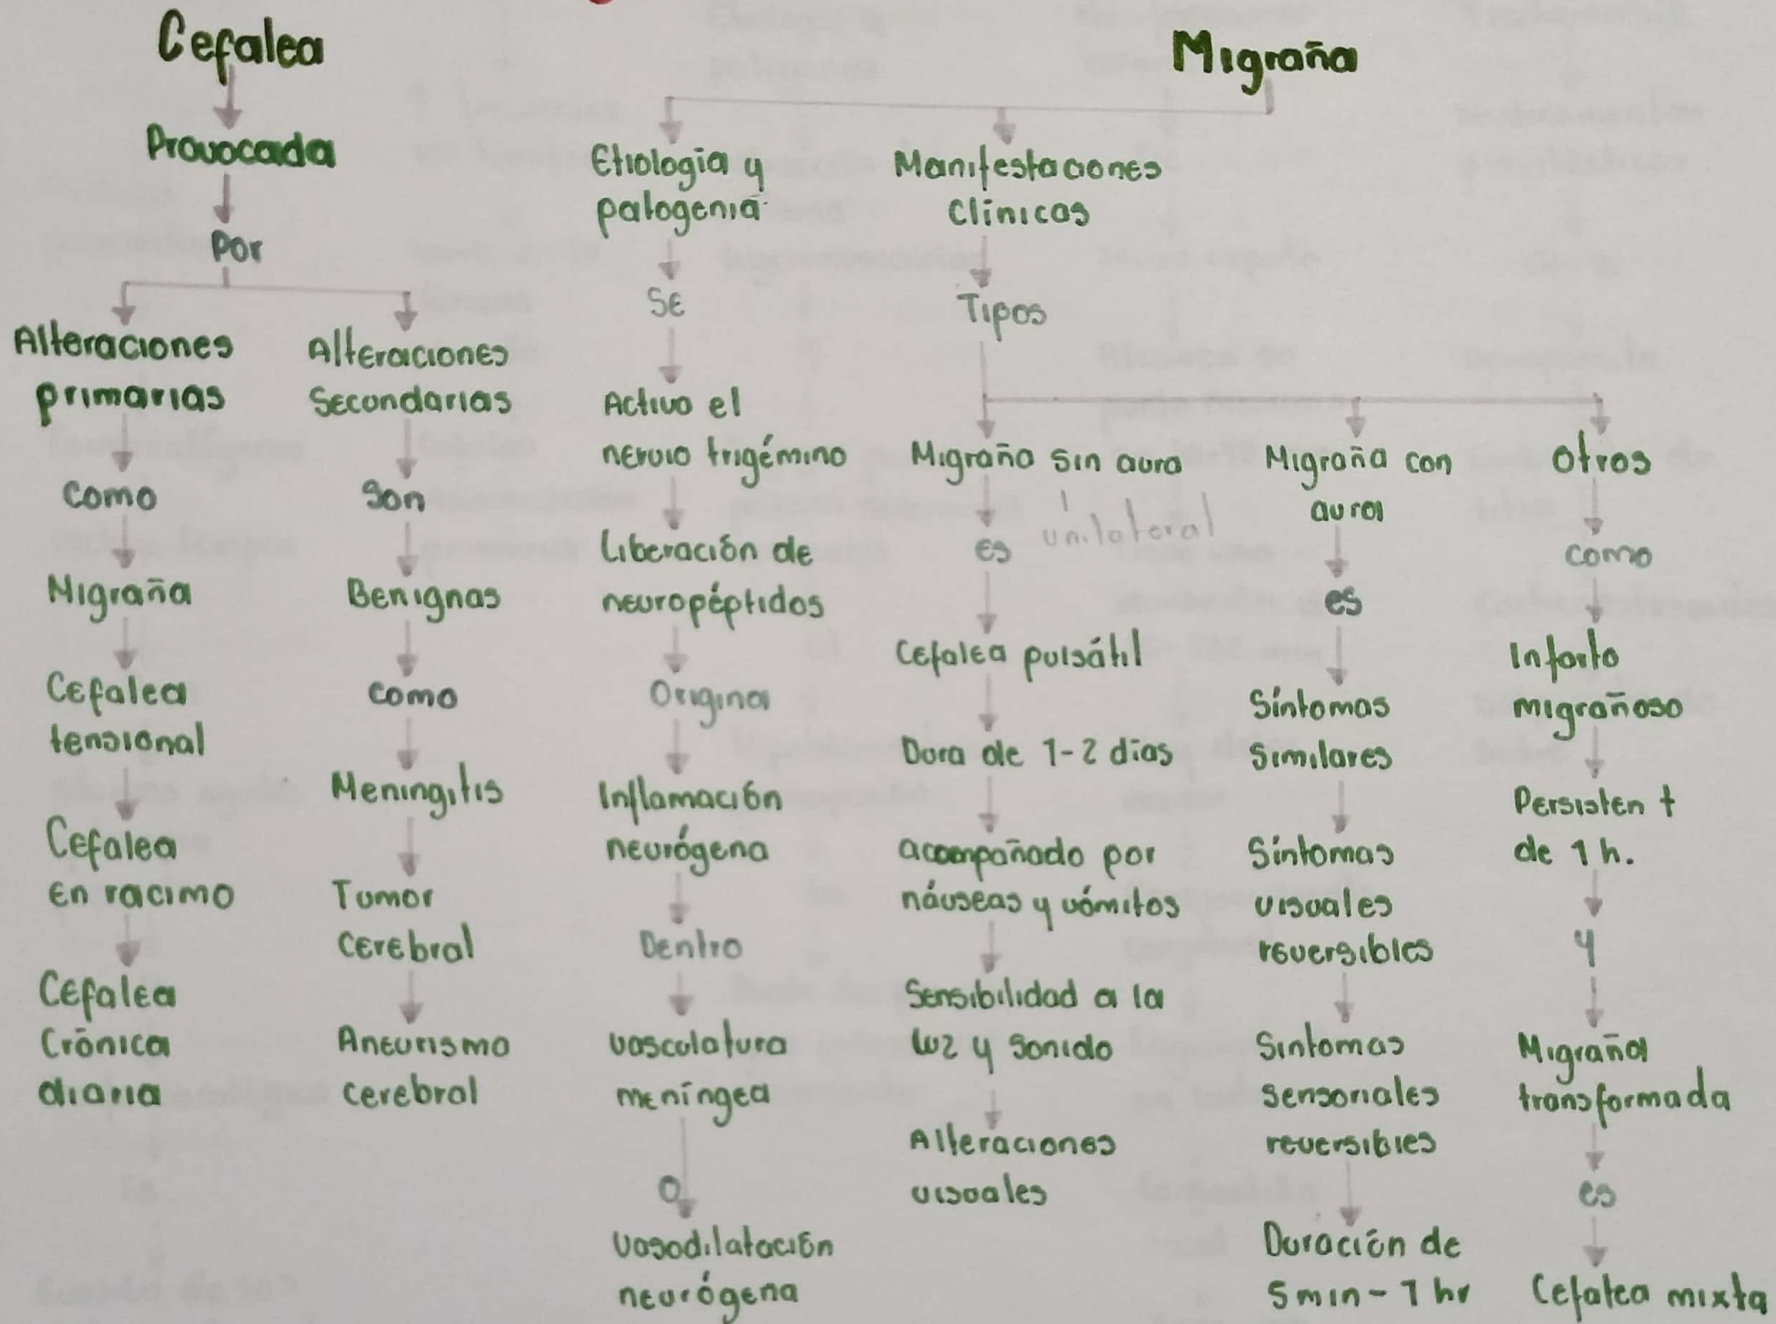 Cefalea
Provocada
Por
Alteraciones
primarias
como
Migraña
Cefalea
tensional
Cefalea
En racimo
Cefalea
Crónica
diaria
Alteraciones
Secondarias
Son
Benignas
como
Meningitis
Tumor
cerebral
Aneurismo
cerebral
Migraña
Etiologia y
patogenia
SE
Activo el
nervio trigémino
Liberación de
neuropéptidos
Origina
Inflamación
neurógena
Dentro
vasculatura
meníngea
O
Vasodilatación
neurógena
Manifestaciones
Clinicas
Tipos
Migraña sin aura
unilateral
es
Cefalea pulsátil
Dura de 1-2 dias
acompañado por
náuseas y vómitos
Sensibilidad a la
luz y sonido
Alteraciones
visuales
Migraña con
aura
es
Síntomas
similares
Síntomas
visuales
reversibles
Sintomas
sensoriales
reversibles
Duración de
5min - 1 hr
Otros
como
Infarto
migrañoso
Persisten +
de 1 h.
y
Migraña
transformada
es
Cefalea mixta